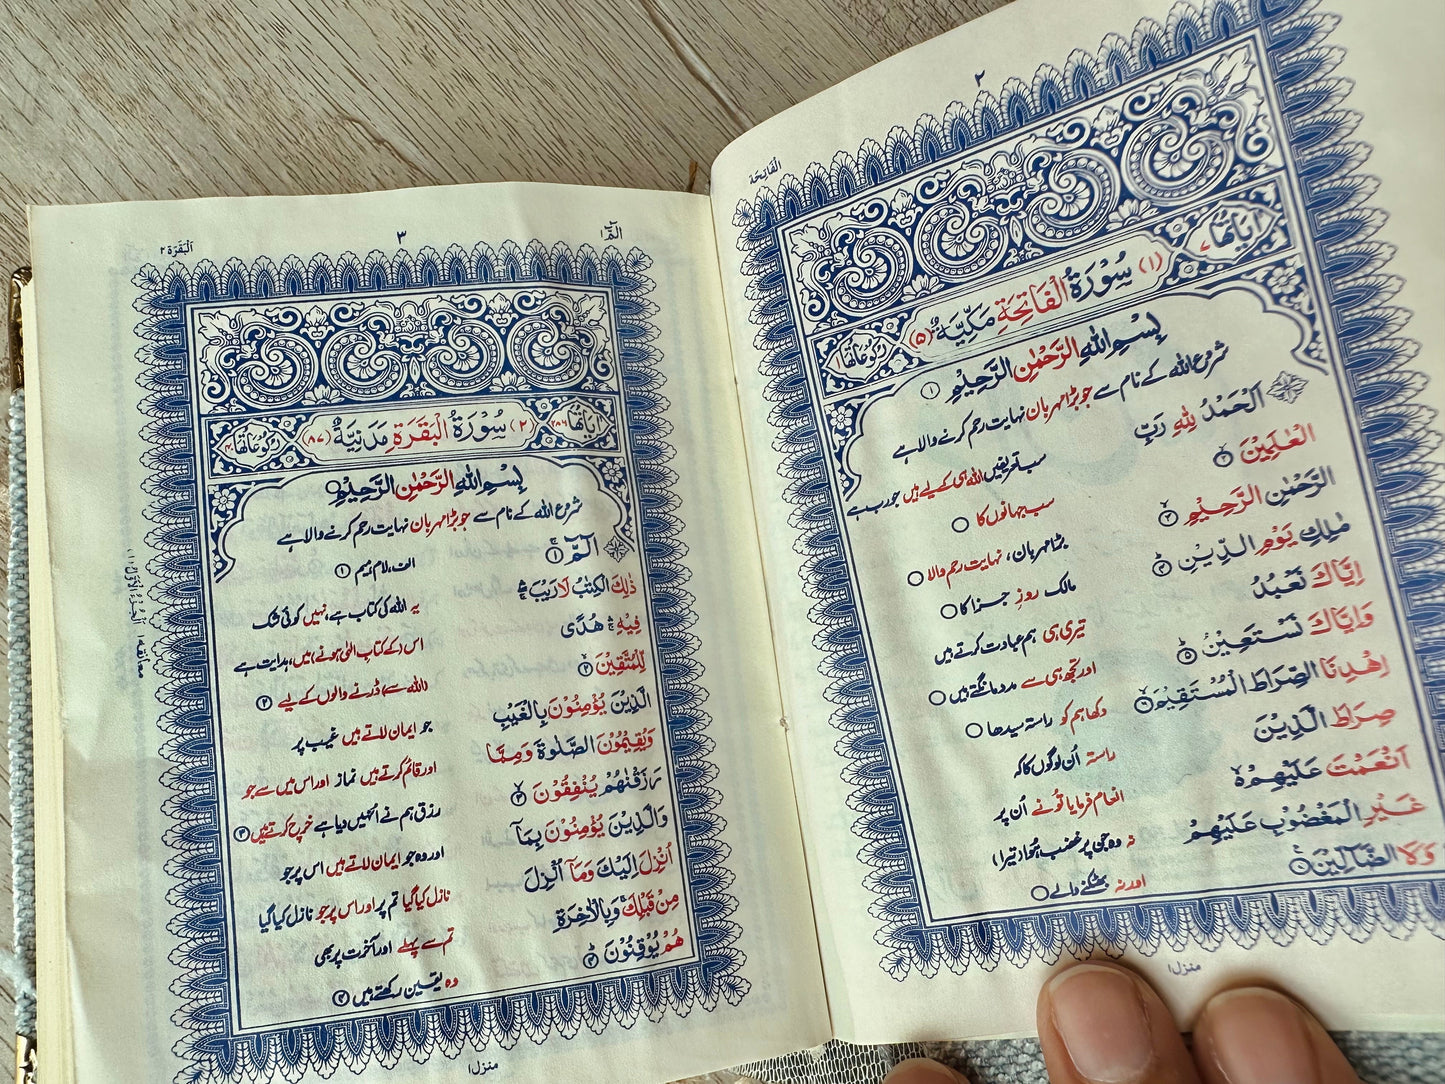 ٢
الفاتحة
اٰيَاتُهَا ٧
(١) سُوْرَةُ الْفَاتِحَةِ مَكِّيَّةٌ (٥)
رُكُوْعَاتُهَا ١
بِسْمِ اللّٰهِ الرَّحْمٰنِ الرَّحِيْمِ ١
شروع اللہ کے نام سے جو بڑا مہربان نہایت رحم کرنے والا ہے
اَلْحَمْدُ لِلّٰهِ رَبِّ
سب تعریفیں اللہ ہی کے لیے ہیں جو رب ہے
الْعٰلَمِيْنَ ٢
سب جہانوں کا
الرَّحْمٰنِ الرَّحِيْمِ ٣
بڑا مہربان، نہایت رحم والا
مٰلِكِ يَوْمِ الدِّيْنِ ٣
مالک روزِ جزا کا
اِيَّاكَ نَعْبُدُ
تیری ہی ہم عبادت کرتے ہیں
وَاِيَّاكَ نَسْتَعِيْنُ ٥
اور تجھ ہی سے مدد مانگتے ہیں
اِهْدِنَا الصِّرَاطَ الْمُسْتَقِيْمَ ٦
دکھا ہم کو راستہ سیدھا
صِرَاطَ الَّذِيْنَ
راستہ اُن لوگوں کا کہ
اَنْعَمْتَ عَلَيْهِمْ
انعام فرمایا تُونے اُن پر
غَيْرِ الْمَغْضُوْبِ عَلَيْهِمْ
نہ وہ جن پر غضب ہُوا (تیرا)
وَلَا الضَّآلِّيْنَ
اور نہ بھٹکنے والے
منزل ١
٣
الٓمّٓ ١
اَلْبَقَرَة ٢
اٰيَاتُهَا ٢٨٦
(٢) سُوْرَةُ الْبَقَرَةِ مَدَنِيَّةٌ (٨٧)
رُكُوْعَاتُهَا ٤٠
بِسْمِ اللّٰهِ الرَّحْمٰنِ الرَّحِيْمِ
شروع اللہ کے نام سے جو بڑا مہربان نہایت رحم کرنے والا ہے
الٓمّٓ ١
الف، لام، میم ١
ذٰلِكَ الْكِتٰبُ لَا رَيْبَ
یہ اللہ کی کتاب ہے، نہیں کوئی شک
فِيْهِ هُدًى
اس (کے کتابِ الٰہی ہونے) میں، ہدایت ہے
لِّلْمُتَّقِيْنَ ٢
(اللہ سے) ڈرنے والوں کے لیے ٢
الَّذِيْنَ يُؤْمِنُوْنَ بِالْغَيْبِ
جو ایمان لاتے ہیں غیب پر
وَيُقِيْمُوْنَ الصَّلٰوةَ وَمِمَّا
اور قائم کرتے ہیں نماز اور اس میں سے جو
رَزَقْنٰهُمْ يُنْفِقُوْنَ ٣
رزق ہم نے انہیں دیا ہے خرچ کرتے ہیں ٣
وَالَّذِيْنَ يُؤْمِنُوْنَ بِمَآ
اور وہ جو ایمان لاتے ہیں اس پر جو
اُنْزِلَ اِلَيْكَ وَمَآ اُنْزِلَ
نازل کیا گیا تم پر اور اس پر جو نازل کیا گیا
مِنْ قَبْلِكَ وَبِالْاٰخِرَةِ
تم سے پہلے اور آخرت پر بھی
هُمْ يُوْقِنُوْنَ ٤
وہ یقین رکھتے ہیں ٤
معانقه ١
اَلْجُزْءُ الْاَوَّلُ (١)
منزل ١